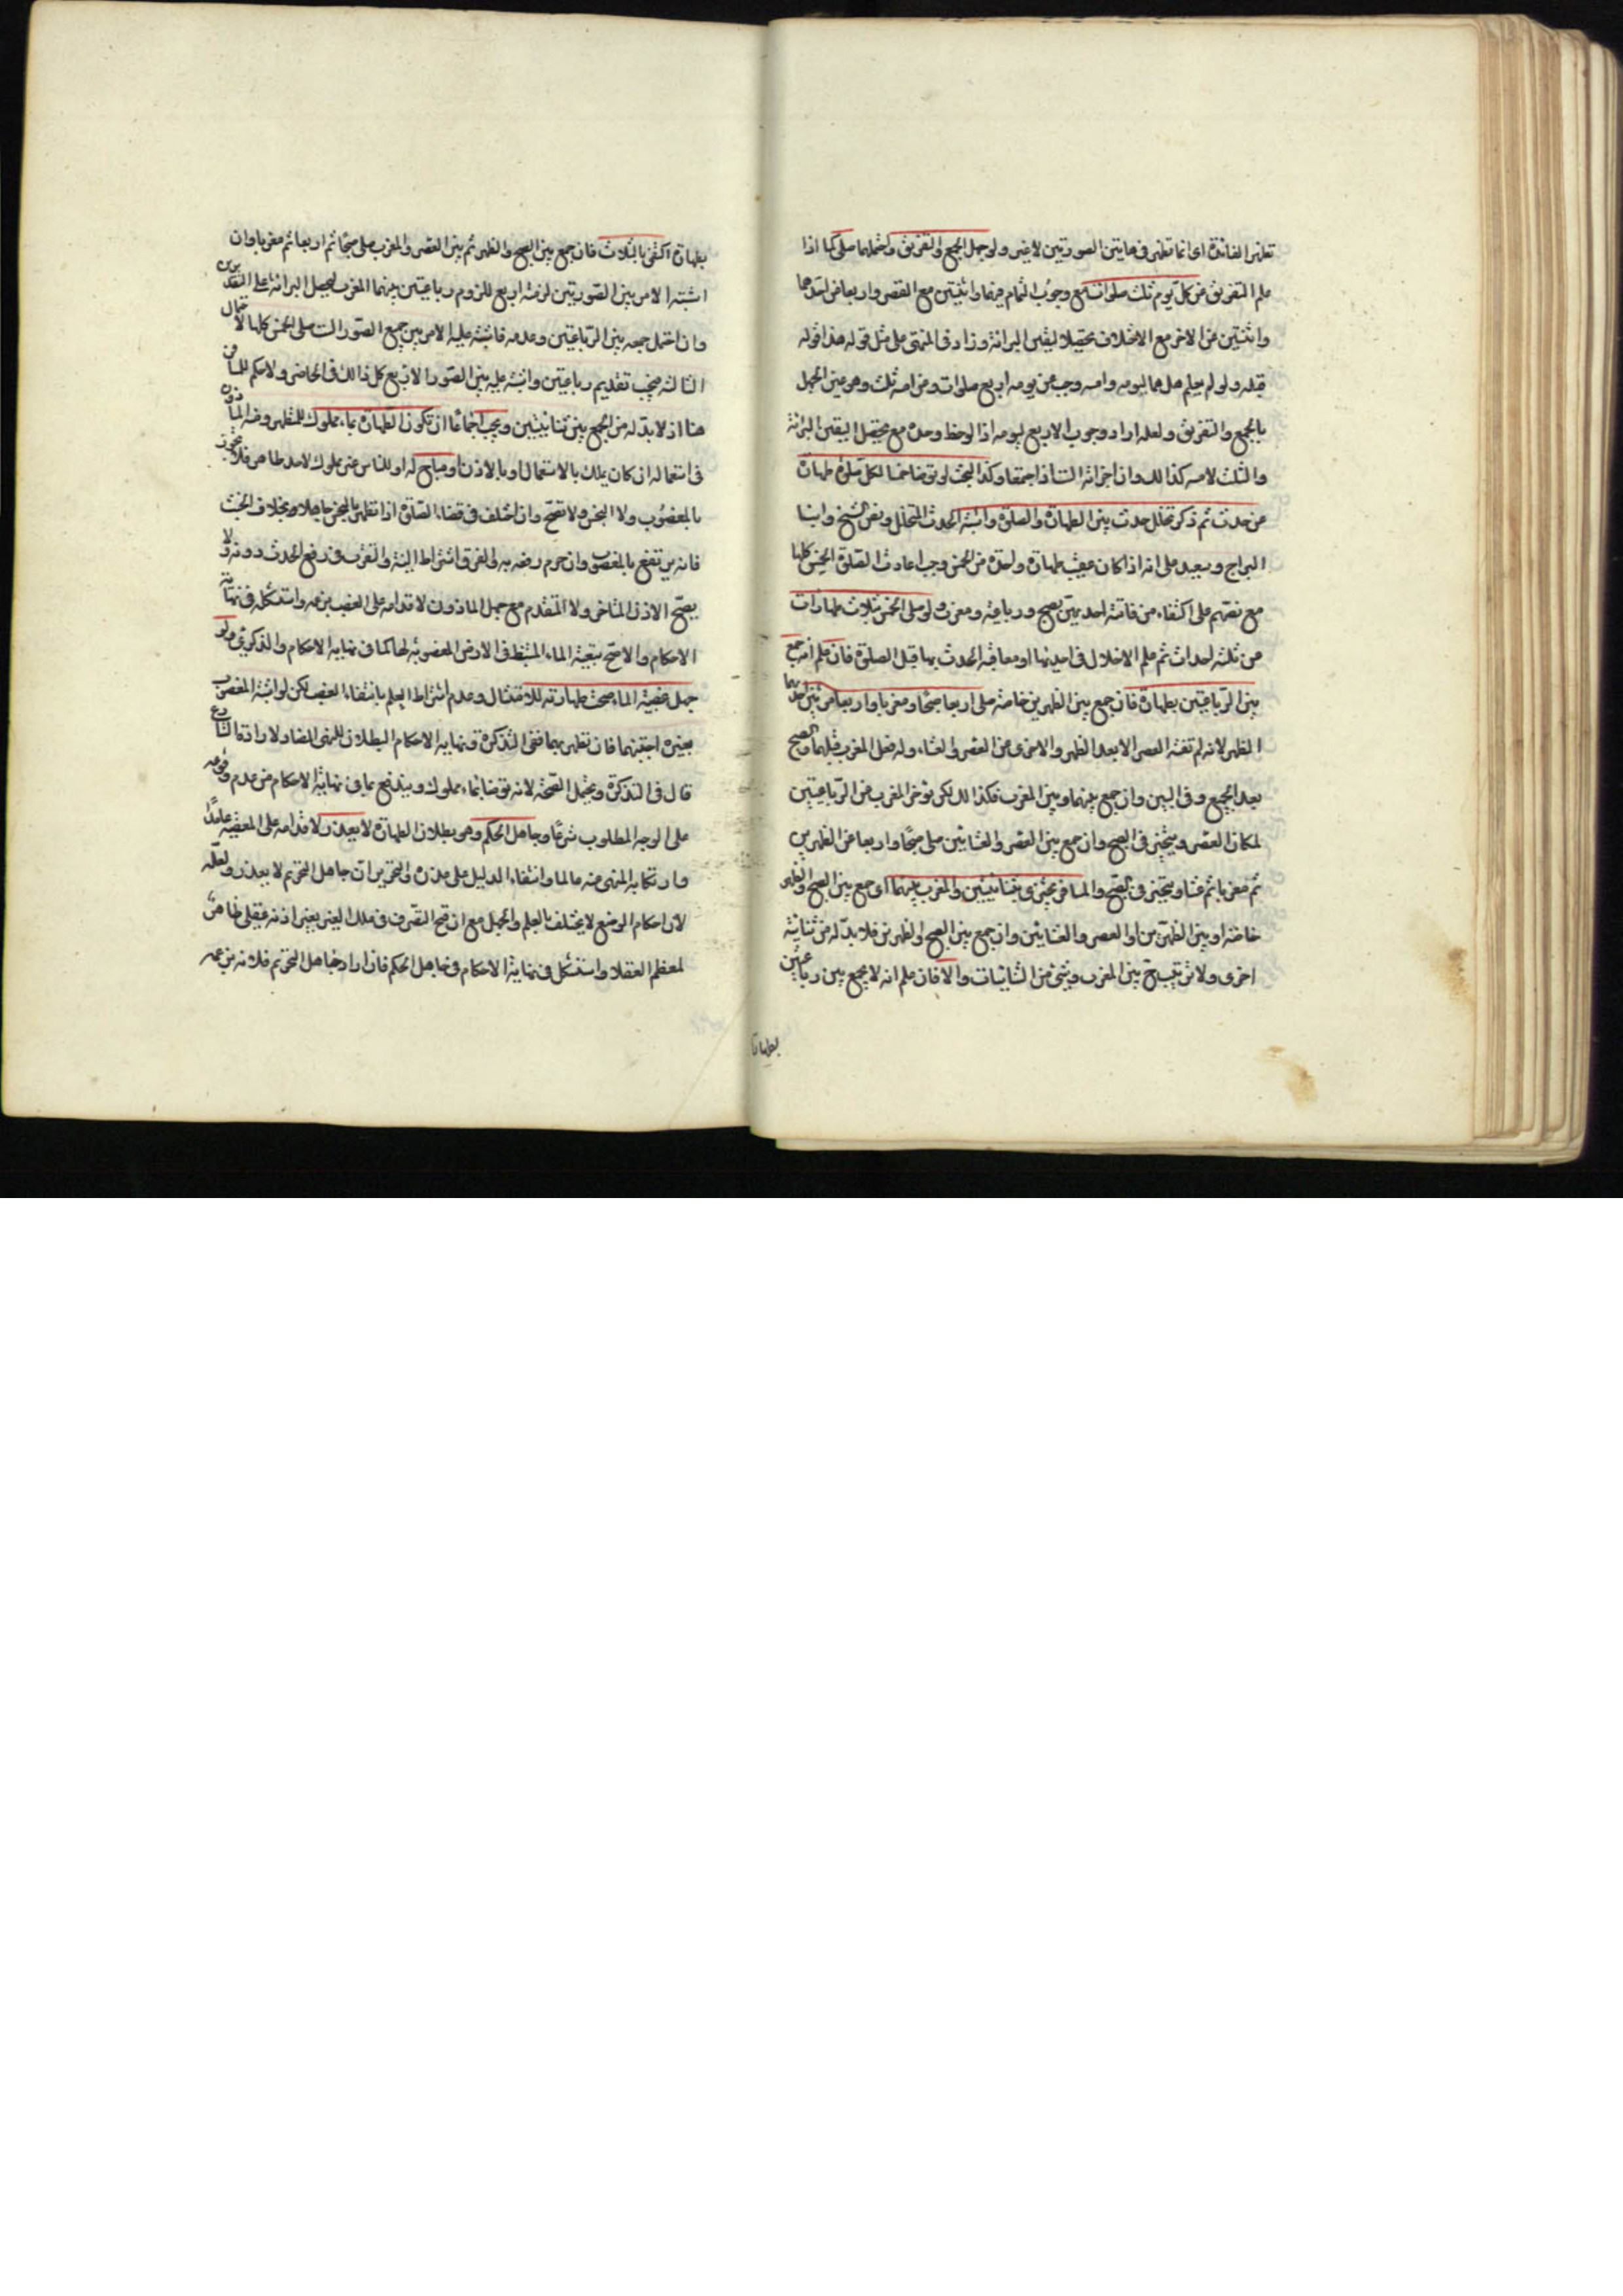 تظهر الفائدة اى انما تظهر فى هاتين الصورتين لا غير ولو جهل الجمع والتفريق واحتملهما صلى كما اذا
علم التفريق عن كل يوم ثلث صلوات مع وجوب التمام فيهما واثنتين مع القصر واربعا عن احدهما
واثنتين عن الاخر مع الاختلاف تحصيلا ليقين البرائة وزاد فى المنتهى على مثل قوله هذا قوله
قبله ولو لم يعلم هل هما ليومه وامسه وجب عن يومه اربع صلوات وعن امسه ثلث وهو عين الجهل
بالجمع والتفريق ولعله اراد وجوب الاربع ليومه اذا لوحظ وحده مع تحصيل اليقين البرائة
والثلث لامسه كذلك وان اجزأته الست اذا اجتمعا وكذا البحث لو توضا خمسا لكل صلوة طهارة
عن حدث ثم ذكر تخلل حدث بين الطهارة والصلوة واشتبه الحدث المتخلل ونص الشيخ وابنا
البراج وسعيد على انه اذا كان عقيب طهارة واحدة من الخمس وجب اعادة الصلوة الخمس كلها
مع نصهم على اكتفاء من فاتته احديهن بصبح ورباعية ومغرب ولو صلى الخمس بثلاث طهارات
عن ثلثة احداث ثم علم الاخلال فى احديها او معاقبة الحدث بها قبل الصلوة فان علم انه جمع
بين الرباعيتين بطهارة فان جمع بين الظهرين خاصة صلى اربعا صبحا ومغربا واربعا مرتين احديهما
الظهر لانه لم تفته العصر الا بعد الظهر والاخرى عن العصر والعشاء وله فعل المغرب قبلهما والصبح
بعد الجميع وفى البين وان جمع بينهما وبين المغرب فكذلك لكن يؤخر المغرب عن الرباعيتين
لمكان العصر ويتخير فى الصبح وان جمع بين العصر والعشائين صلى صبحا واربعا عن الظهرين
ثم مغربا ثم عشاء ويتخير فى الصبح والمسافر يجتزى بثنائيتين والمغرب بينهما اى جمع بين الصبح والظهر
خاصة او بين الظهرين او العصر والعشائين وان جمع بين الصبح والظهرين فلا بد له من ثنائية
اخرى ولا ترتيب بين المغرب وشئ من الثنائيات والا فان علم انه لا يجمع بين رباعيتين
بطهارة
بطهارة اكتفى بالثلاث فان جمع بين الصبح والظهر ثم بين العصر والمغرب صلى صبحا ثم اربعا ثم مغربا وان
اشتبه الامر بين الصورتين لزمته اربع للزوم رباعيتين بينهما المغرب ليحصل البرائة على التقديرين
وان احتمل جمعه بين الرباعيتين وعدمه فاشتبه عليه الامر بين جميع الصور الست صلى الخمس كلها لاحتمال
الثالثة فيجب تقديم رباعيتين واشتبه عليه بين الصور الاربع كل ذلك فى الحاضر ولا حكم للمسافر
هنا اذ لا بد له من الجمع بين ثنائيتين ويجب اجماعا ان تكون الطهارة بماء مملوك للمتطهر وفيه الماذون
فى استعماله ان كان يملك بالاستعمال او بالاذن او مباح له او للناس غير مملوك لاحد طاهر فلا تجوز
بالمغصوب ولا النجس ولا تصح وان اختلف فى قضاء الصلوة اذا تطهر بالنجس جاهلا وبخلاف الخبث
فانه يرتفع بالمغصوب وان حرم رفعه به والفرق اشتراط النية والتقرب فى رفع الحدث دونه ولا
يصحح الاذن المتاخر ولا المتقدم مع جهل الماذون لاقدامه على الغصب بزعمه واستشكله فى نهاية
الاحكام والاصح تبعية الماء المستنبط فى الارض المغصوبة لها كما فى نهاية الاحكام والذكرى ولو
جهل غصبية الماء صحت طهارته للامتثال وعدم اشتراط العلم بانتفاء الغصب لكن لو اشتبه المغصوب
بغيره اجتنبهما فان تطهر بهما ففى التذكرة ونهاية الاحكام البطلان للنهى المضاد لارادة الشارع
قال فى التذكرة ويحتمل الصحة لانه توضا بماء مملوك ويندفع بما فى نهاية الاحكام من عدم وقوعه
على الوجه المطلوب شرعا وجاهل الحكم وهو بطلان الطهارة لا يعذر لاقدامه على المعصية عامدا
وارتكابه المنهى عنه عالما وانتفاء الدليل على عذره فى التحريرات جاهل التحريم لا يعذر ولعله
لان احكام الوضع لا يختلف بالعلم والجهل مع ان قبح التصرف فى ملك الغير بغير اذنه عقلى ظاهر
لمعظم العقلاء واستشكل فى نهاية الاحكام فى جاهل الحكم فان اراد جاهل التحريم فلانه بزعمه